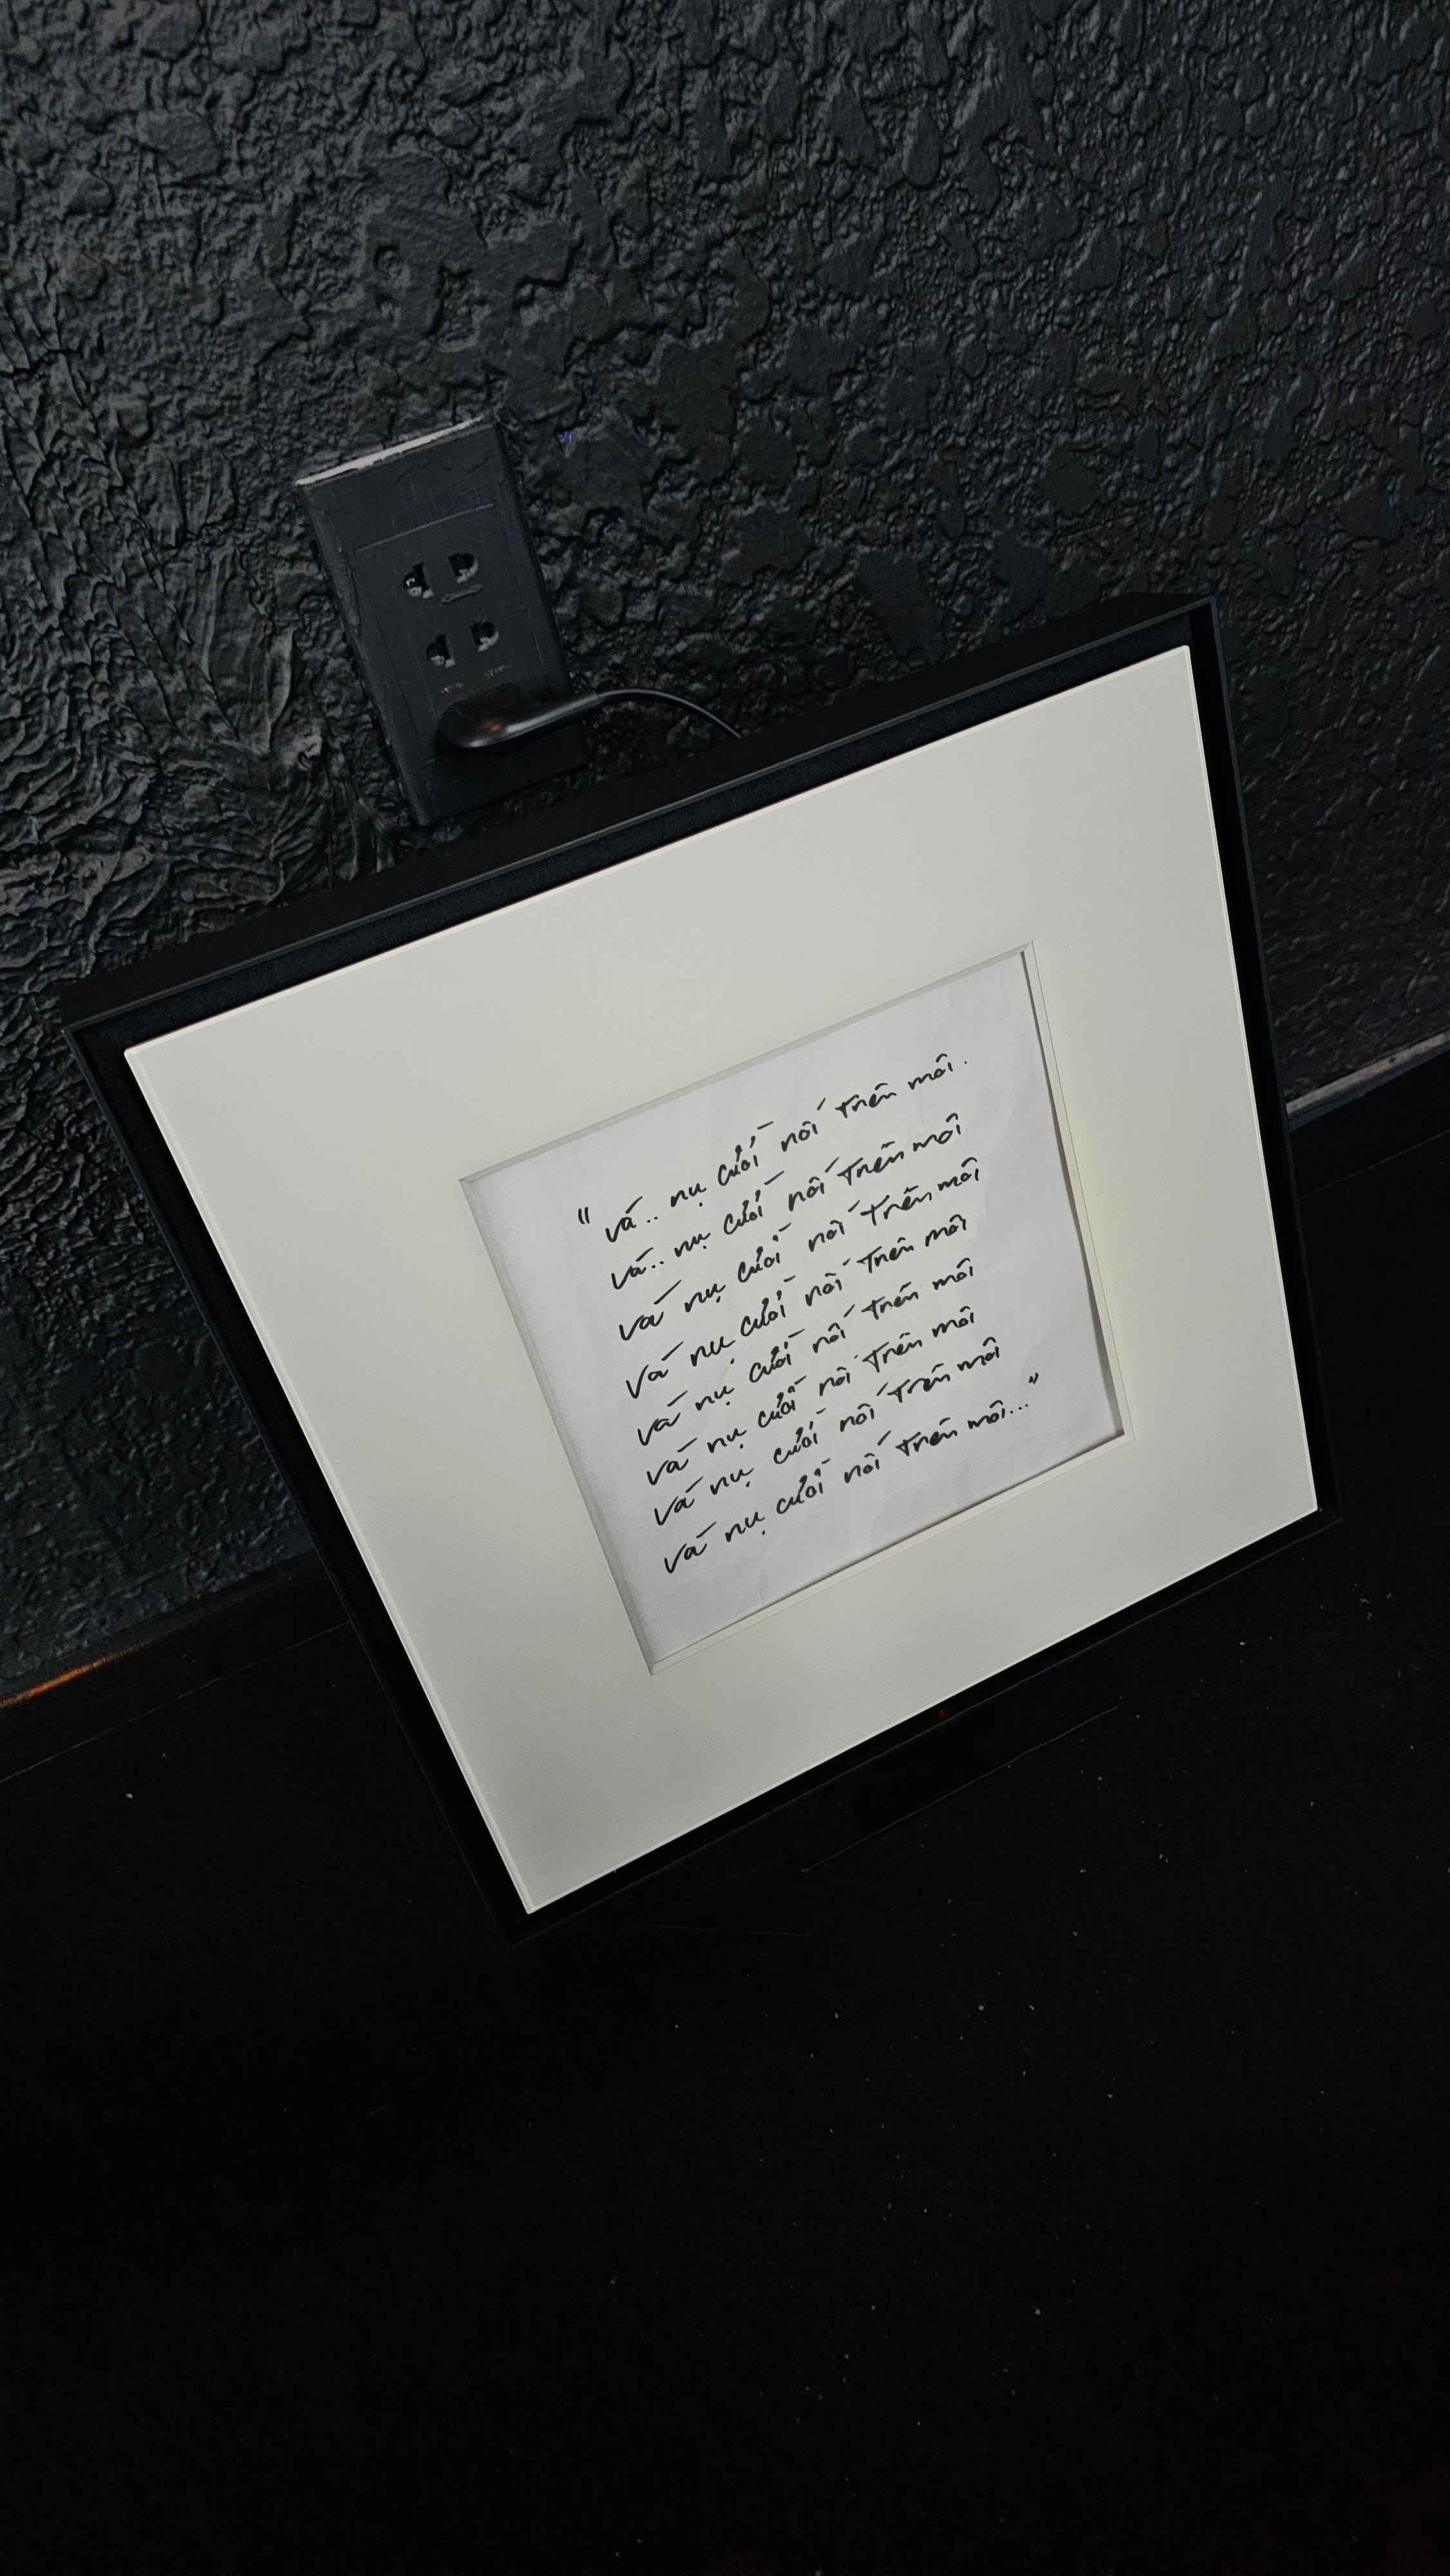 "Vá.. nụ cười nối trên môi.
Vá.. nụ cười nối trên môi
Vá nụ cười nối trên môi
Vá nụ cười nối trên môi
Vá nụ cười nối trên môi
Vá nụ cười nối trên môi
Vá nụ cười nối trên môi
Vá nụ cười nối trên môi..."